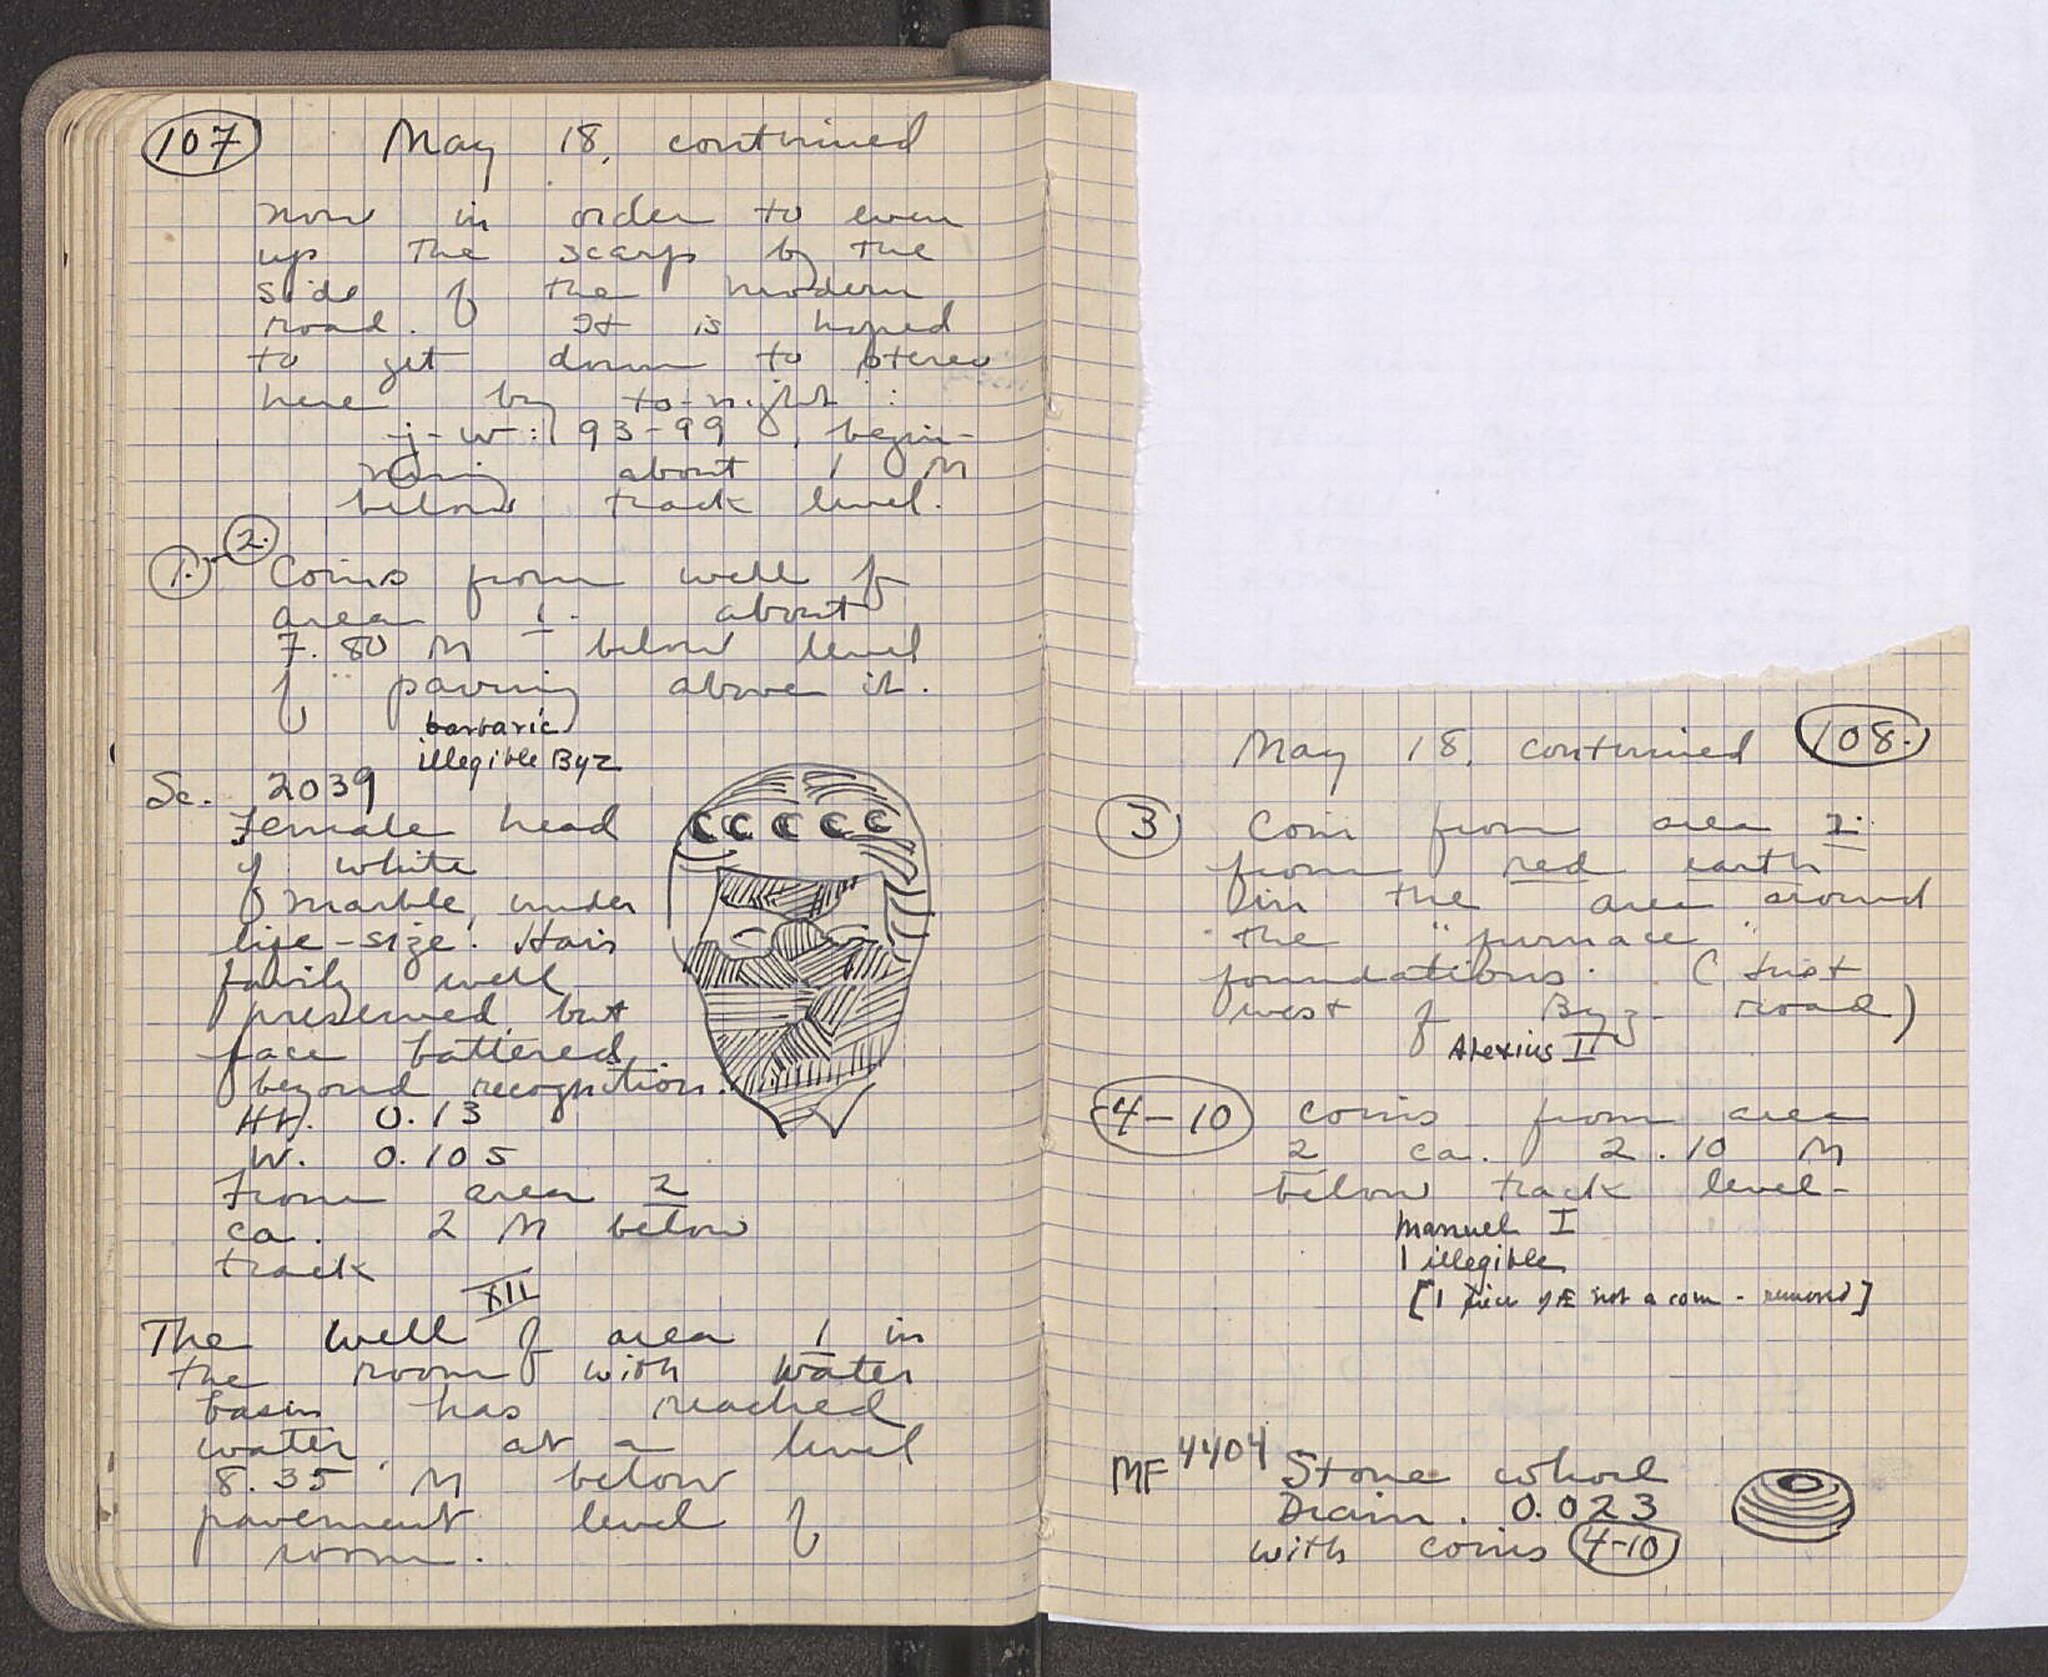 107
May 18, continued
now in order to even
up the scarp by the
side of the modern
road. It is hoped
to get down to stereo
here by to-night:
j-w: 93-99, begin-
ning about 1 M
below track level.
1.-2. Coins from well of
area 1. about
7.80 M below level
of paving above it.
barbaric
illegible Byz
Sc. 2039
Female head
of white
marble, under
life-size. Hair
fairly well
preserved, but
face battered
beyond recognition.
Ht. 0.13
W. 0.105
From area 2
ca. 2 M below
track
XII
The well of area 1 in
the room with water
basin has reached
water, at a level
8.35 M below
pavement level of
room.
May 18, continued 108.
3 Coin from area 2.
from red earth
in the area around
the "furnace"
foundations. (Just
west of Byz. road)
Alexius I
4-10 Coins from area
2 ca. 2.10 M
below track level-
Manuel I
1 illegible
[1 piece of Æ not a coin - removed]
MF 4404 Stone whorl
Diam. 0.023
with coins 4-10